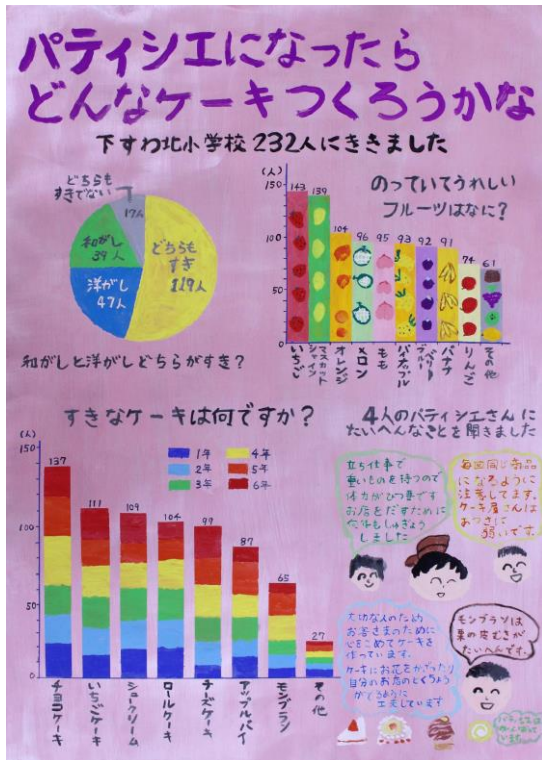 パティシエになったら
どんなケーキつくろうかな
下すわ北小学校232人にききました
どちらも
すきでない
17人
和がし
39人
どちらも
すき
129人
洋がし
47人
和がしと洋がしどちらがすき?
のっていてうれしい
フルーツはなに?
(人)
150
100
50
0
143
139
104
96
95
93
92
91
74
61
いちご
シャイン
マスカット
オレンジ
メロン
もも
パイナップル
ブルー
ベリー
バナナ
りんご
その他
すきなケーキは何ですか?
(人)
150
100
50
0
1年
2年
3年
4年
5年
6年
137
111
109
104
99
87
65
27
チョコケーキ
いちごケーキ
シュークリーム
ロールケーキ
チーズケーキ
アップルパイ
モンブラン
その他
4人のパティシエさんに
たいへんなことを聞きました
立ち仕事で
重いものを持つので
体力がひつ要です
お店をだすために
しゅぎょう
しました
毎回同じ商品
になるように
注意してます。
ケーキ屋さんは
あつさに
弱いです。
大切な人のため
お客さまのために
心をこめてケーキを
作っています。
ケーキにお花をかざったり
自分のお店のとくちょう
がでるように
工夫しています
モンブランは
栗の皮むきが
たいへんです。